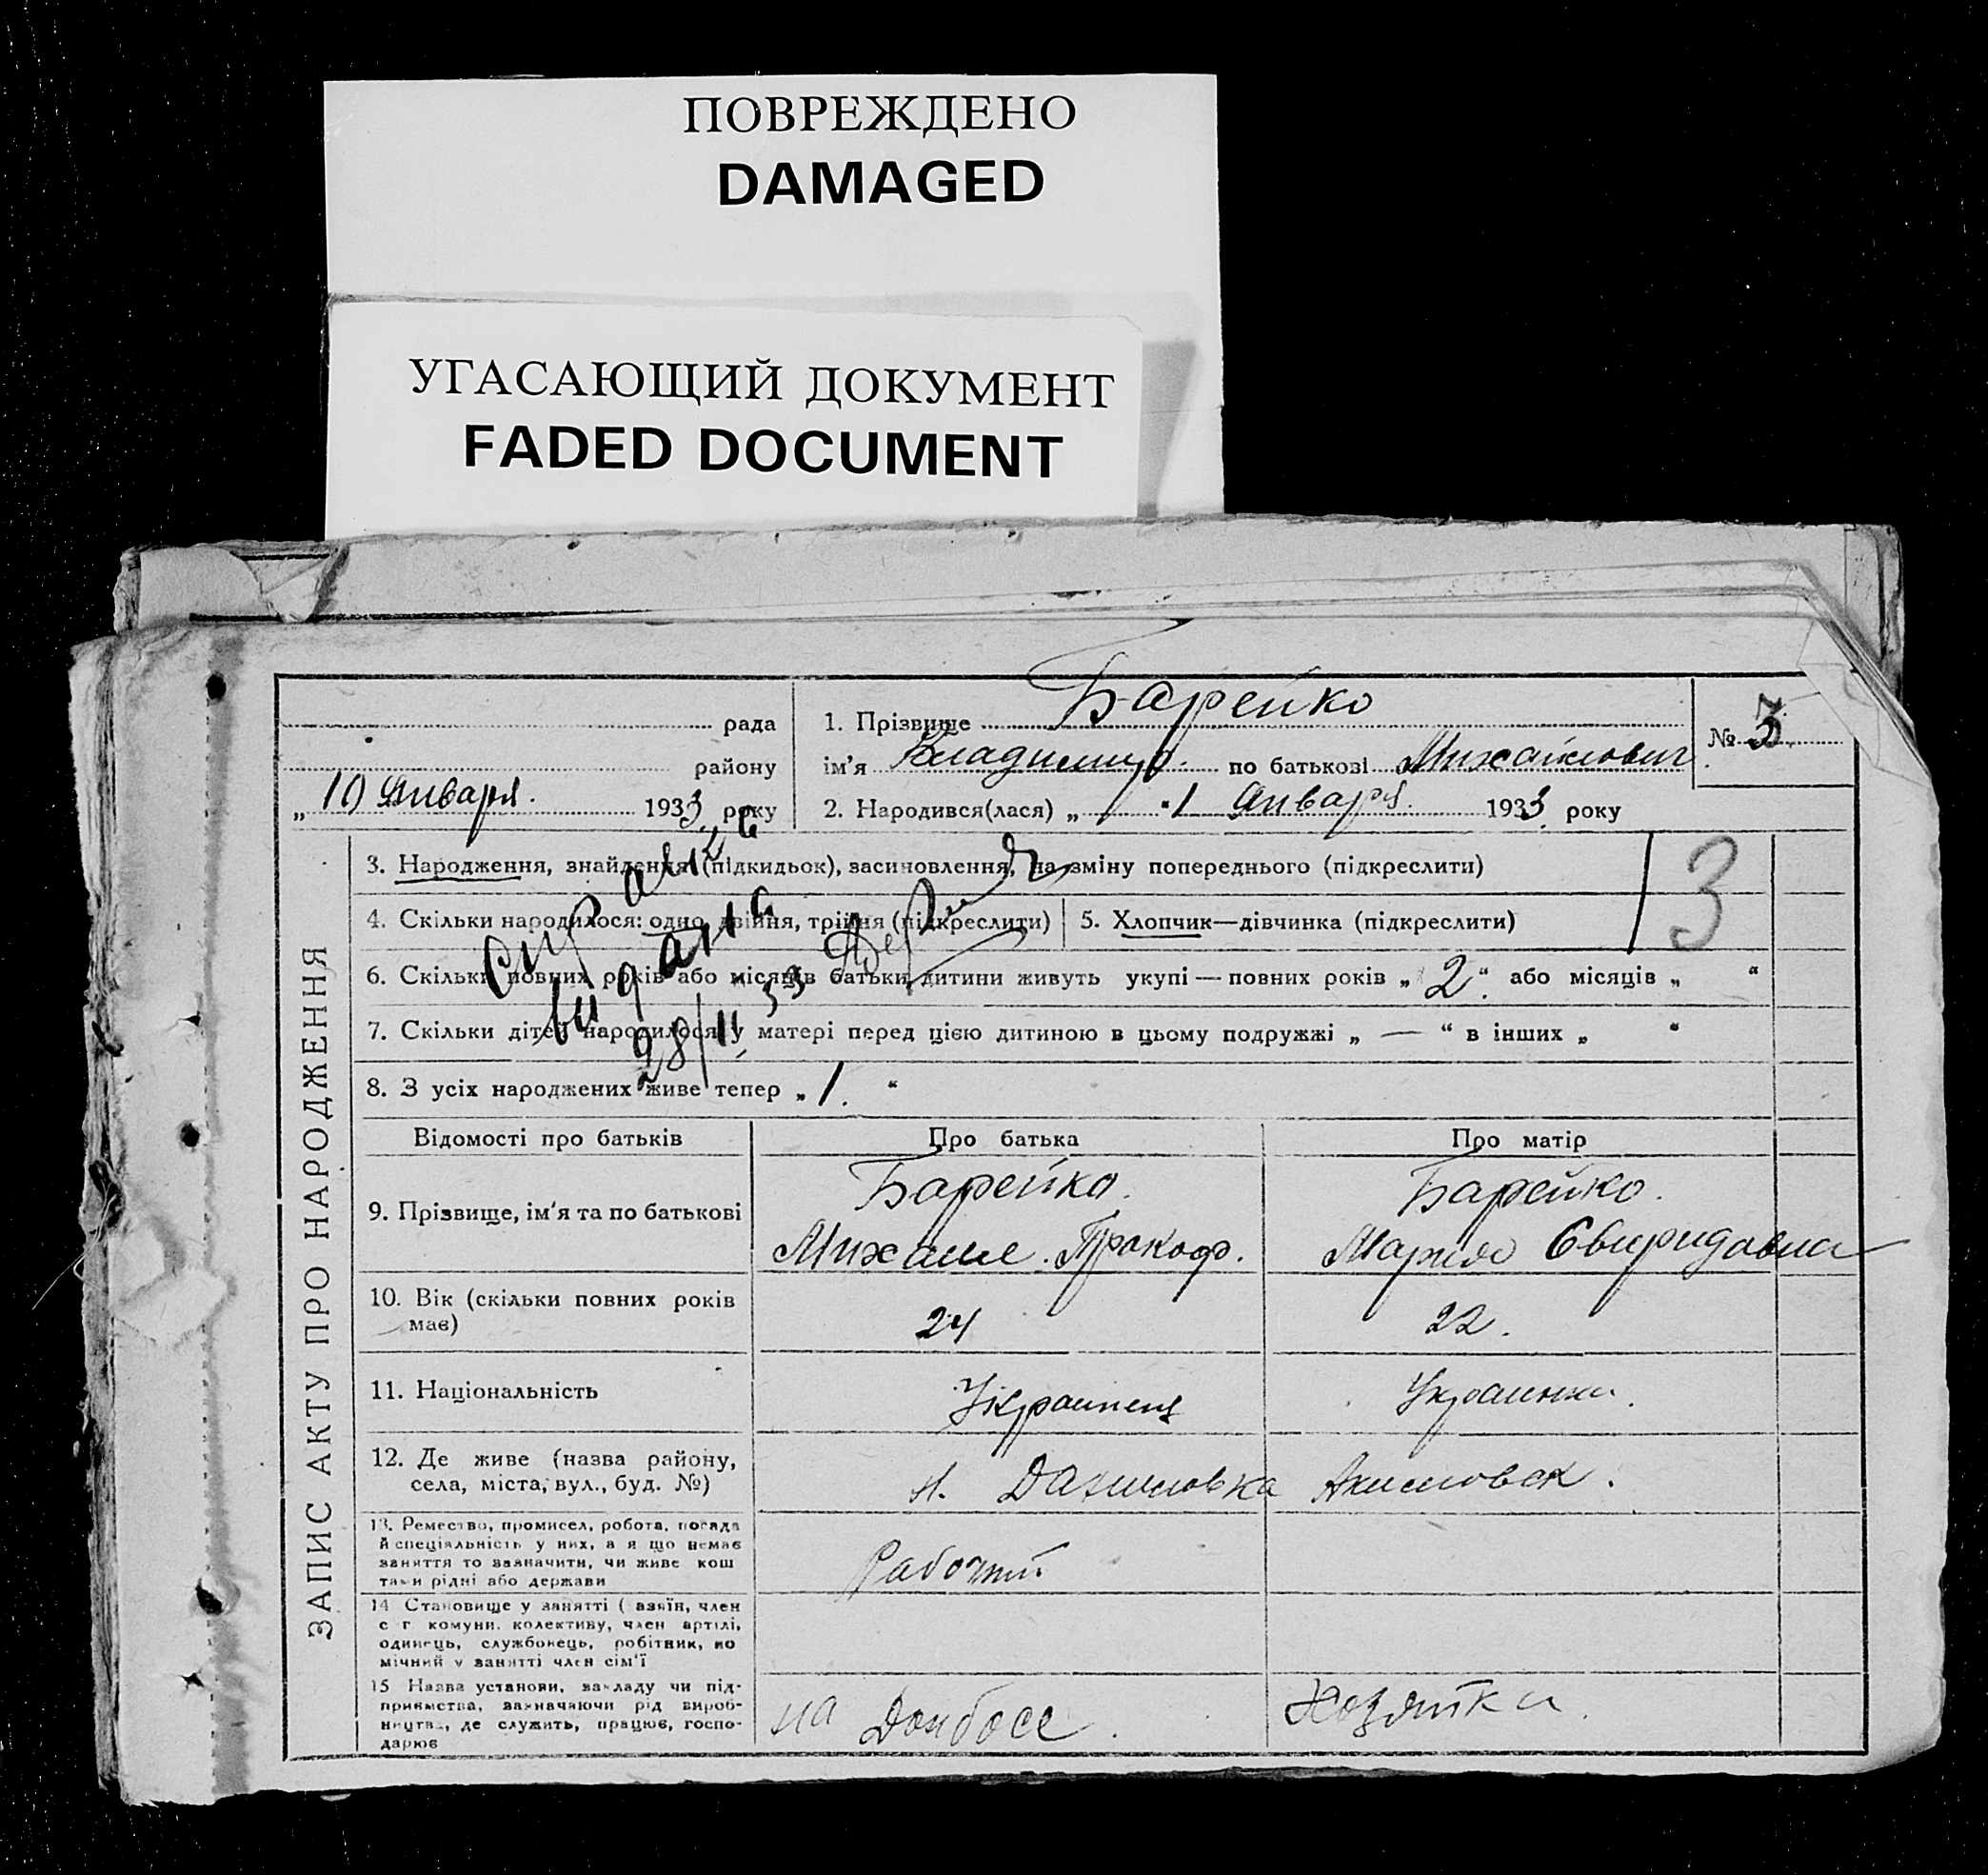 ПОВРЕЖДЕНО
DAMAGED
УГАСАЮЩИЙ ДОКУМЕНТ
FADED DOCUMENT
рада
району
„ 10 Января. 1933 року
1. Прізвище Барейко
ім'я Владимир. по батькові Михайлович
2. Народився(лася) „ 1 Января. 1933 року
№ 3.
ЗАПИС АКТУ ПРО НАРОДЖЕННЯ
3. Народження, знайдення (підкидьок), засиновлення, на зміну попереднього (підкреслити)
3
4. Скільки народилося: одно, двійня, трійня (підкреслити)
5. Хлопчик—дівчинка (підкреслити)
6. Скільки повних років або місяців батьки дитини живуть укупі — повних років „ 2 “ або місяців „ “
7. Скільки дітей народилося у матері перед цією дитиною в цьому подружжі „ — “ в інших „ “
8. З усіх народжених живе тепер „ 1. “
видана
28/II 33
Відомості про батьків
Про батька
Про матір
9. Прізвище, ім'я та по батькові
Барейко.
Михаил. Прокоф.
Барейко.
Мария Свиридовна
10. Вік (скільки повних років
має)
24
22.
11. Національність
Украинец
Украинка.
12. Де живе (назва району,
села, міста, вул., буд. №)
Акимовск.
13. Ремество, промисел, робота, посада
й спеціяльність у них, а я що немає
заняття то зазначити, чи живе кош
тами рідні або держави
Рабочий
14 Становище у занятті (хазяїн, член
с г комуни, колективу, член артілі,
одинець, службовець, робітник, по
мічний у занятті член сім'ї
15 Назва установи, закладу чи під-
приємства, зазначаючи рід вироб-
ництва, де служить, працює, госпо-
дарює
на Донбосе.
Хозяйка.